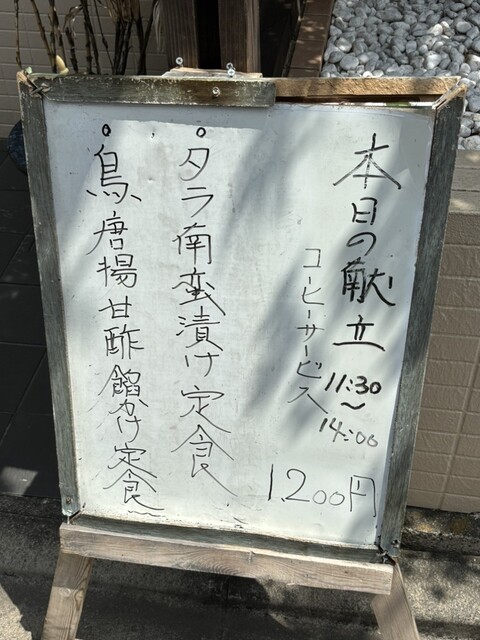 本日の献立
11:30
〜
14:00
コーヒーサービス
1,200円
タラ南蛮漬け定食
鳥唐揚甘酢餡かけ定食